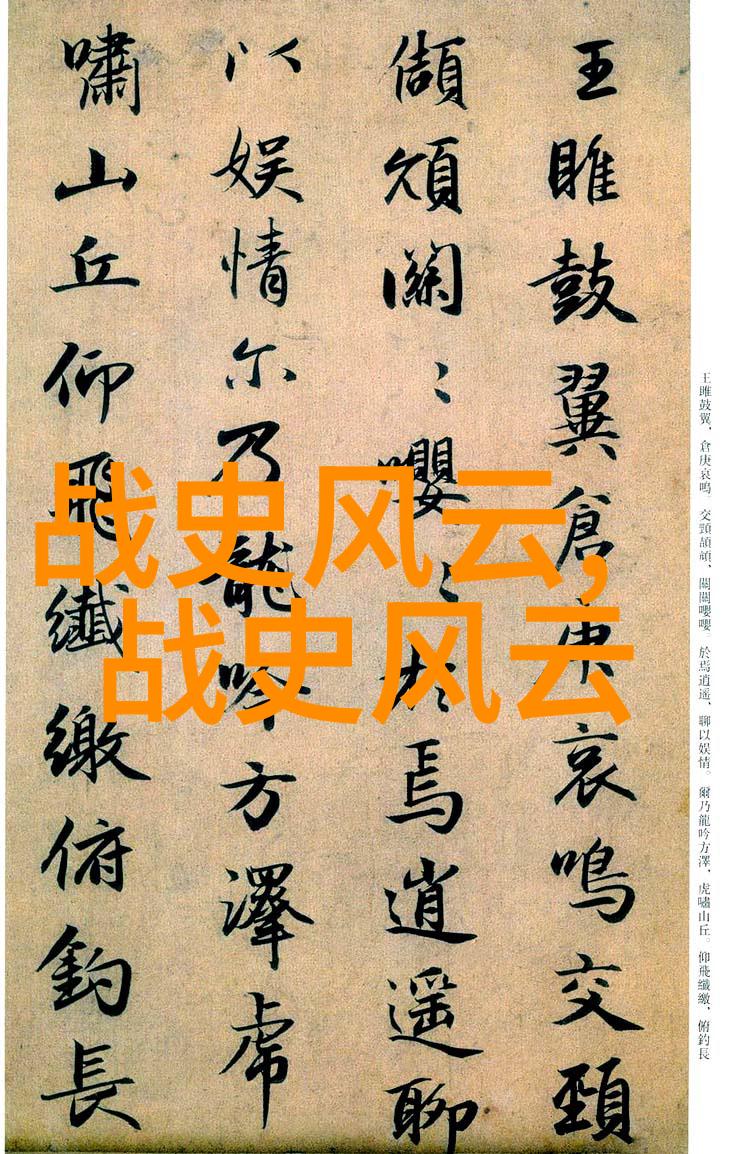 王雎鼓翼倉庚哀鳴交頸
頡頏關〻嚶〻於焉逍遥聊
以娱情尔乃龍吟方澤虎
嘯山丘仰飛纖繳俯釣長
王雎鼓翼，倉庚哀鳴。交頸頡頏，關關嚶嚶。於焉逍遥，聊以娱情。爾乃龍吟方澤，虎嘯山丘。仰飛纖繳，俯釣長
战史风云,
战史风云